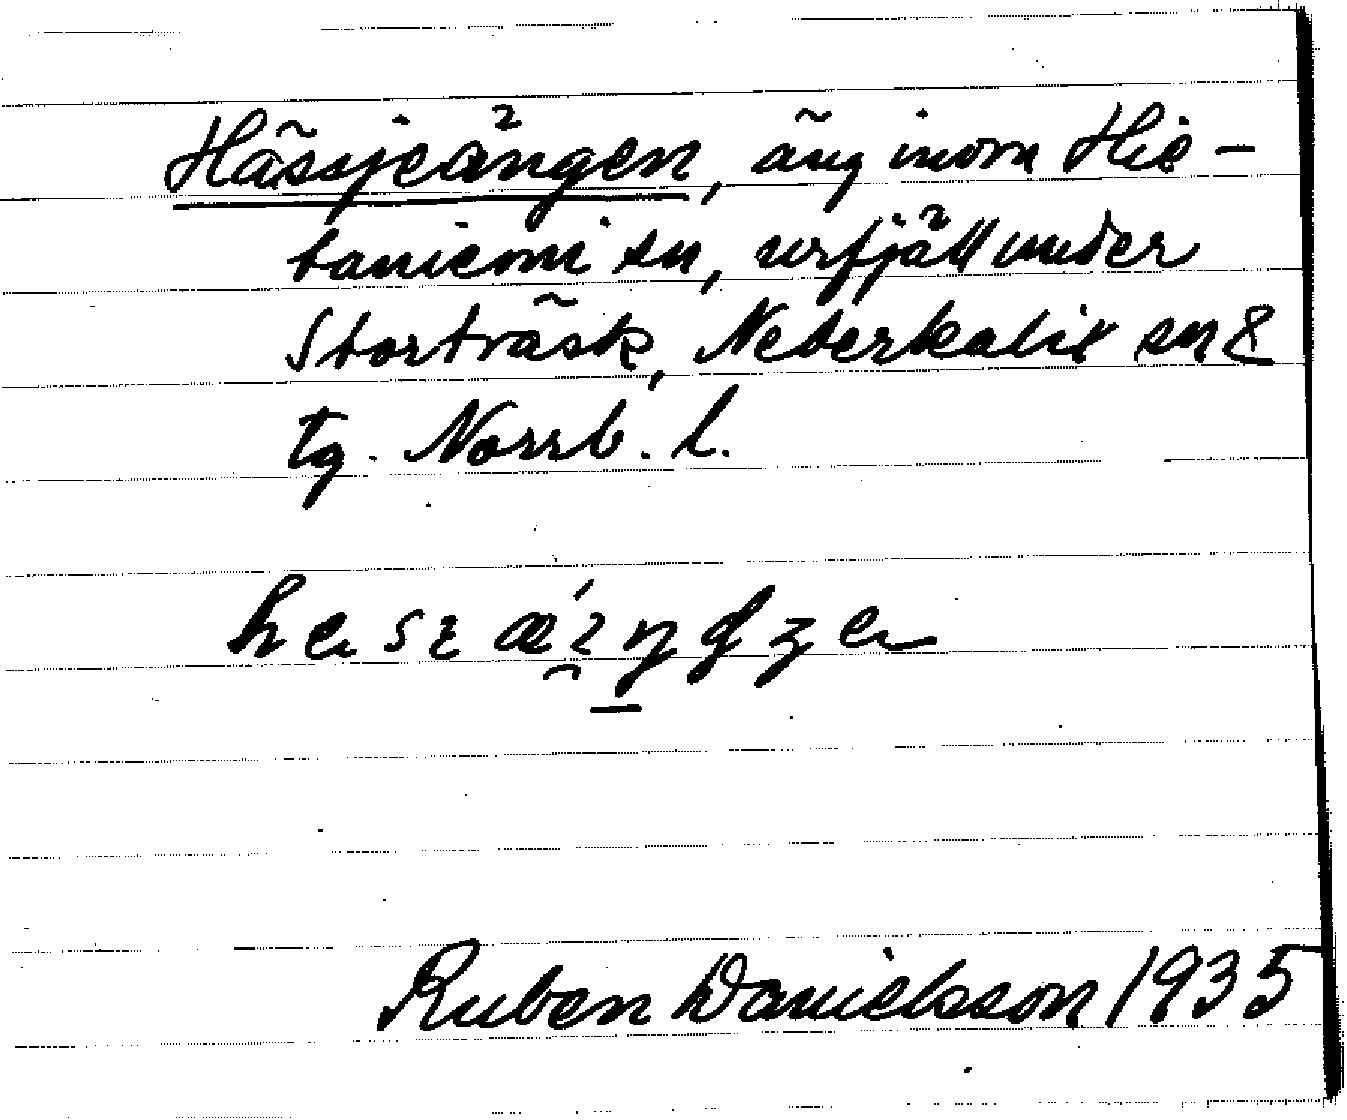 Hässjeängen, äng inom Hie-
taniemi sn, urfjäll under
Storträsk, Nederkalix sn &
tg. Norrb. l.
Ruben Danielsson 1935